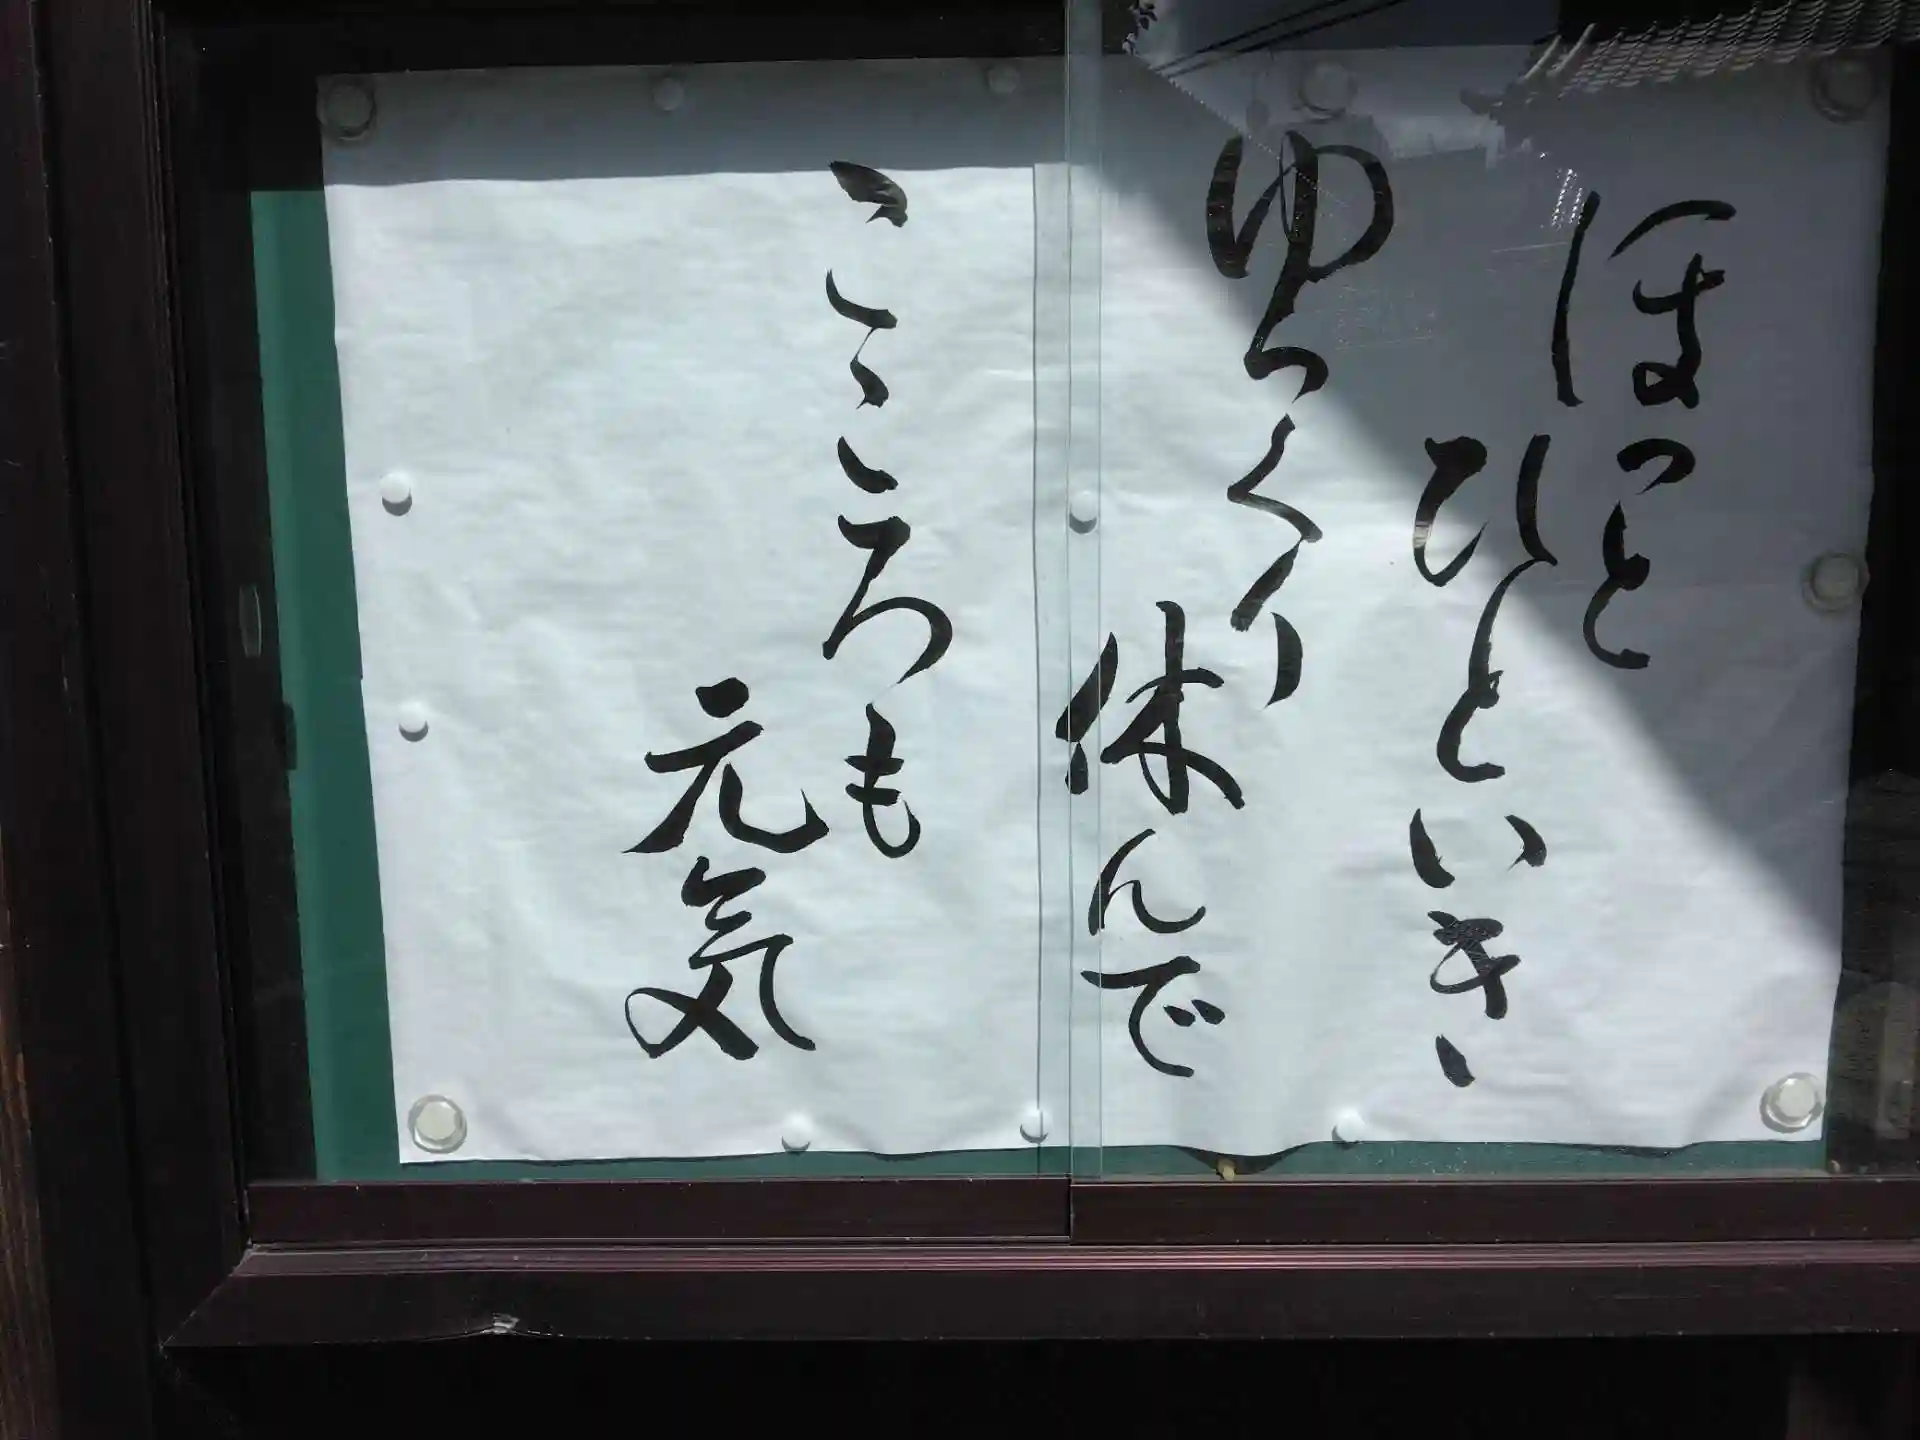 ほっと
ひといき、
ゆっくり
休んで
こころも
元気